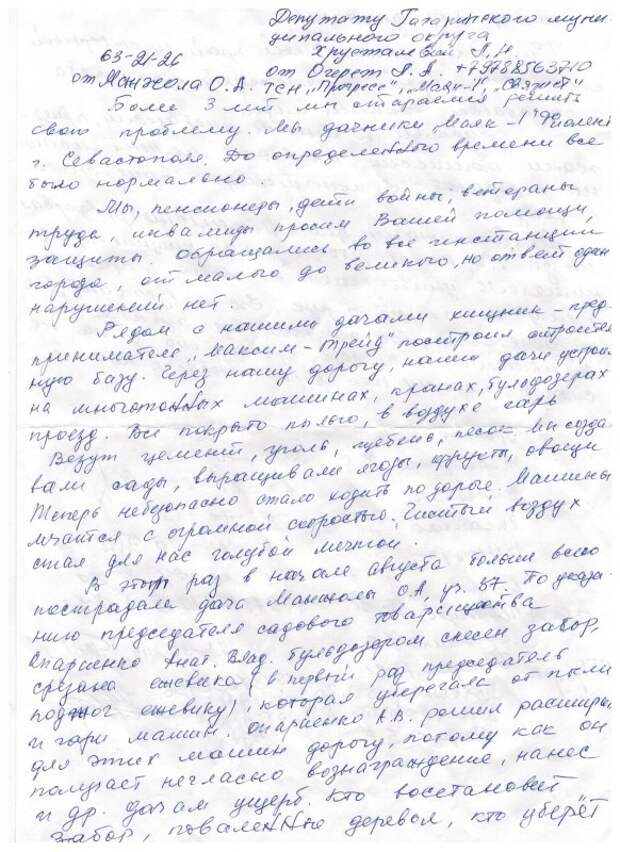 Депутату Гагаринского муни-
ципального округа
63-21-26 Хрусталевой Г.Н.
от Манжола О.А. от Огерет Л.А. +79788563710
тсн „Прогресс", „Маяк-1", „Связист"
Более 3 лет мы стараемся решить
свою проблему. Мы дачники „Маяк-1" Фиолент
г. Севастополя. До определенного времени все
было нормально.
Мы, пенсионеры, дети войны, ветераны
труда, инвалиды просим Вашей помощи,
защиты. Обращались во все инстанции
города, от малого до великого, но ответ один
нарушений нет.
Рядом с нашими дачами хищник-пред-
приниматель „Максим-трейд" построил строитель
ную базу. Через нашу дорогу, наши дачи устроил
на многотонных машинах, кранах, бульдозерах
проезд. Все покрыто пылью, в воздухе гарь
Везут цемент, уголь, щебень, песок Мы созда
вали сады, выращивали ягоды, фрукты, овощи
Теперь небезопасно стало ходить по дороге. Машины
мчатся с огромной скоростью. Чистый воздух
стал для нас голубой мечтой.
В этот раз в начале августа больше всего
пострадала дача Манжолы О.А. уч. 37. По указа-
нию председателя садового товарищества
Опариенко Анат. Влад. бульдозером снесен забор,
срезана ежевика (в первый раз председатель
поджог ежевику), которая уберегала от пыли
и гари машин. Опариенко А.В. решил расширить
для этих машин дорогу, потому как он
получает негласно вознаграждение, нанес
и др. дачам ущерб. Кто восстановит
забор, поваленные деревья, кто уберёт